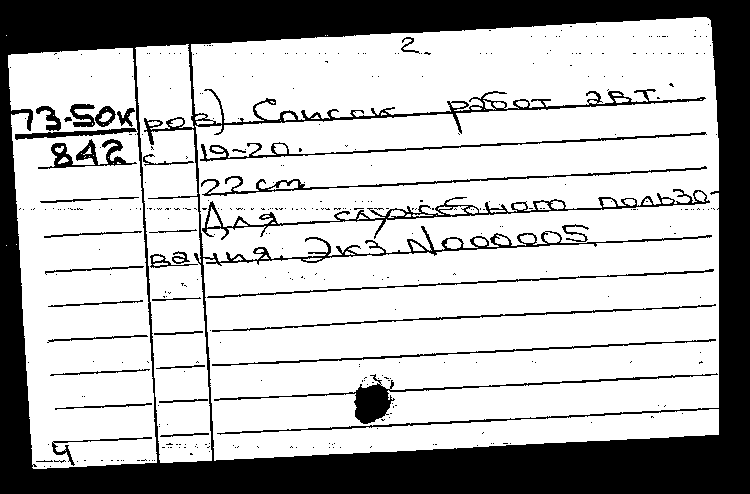 2.
73-50к ров). Список работ авт.:
842 с. 19-20.
22 cm
Для служебного пользо-
вания. Экз. N000005
4